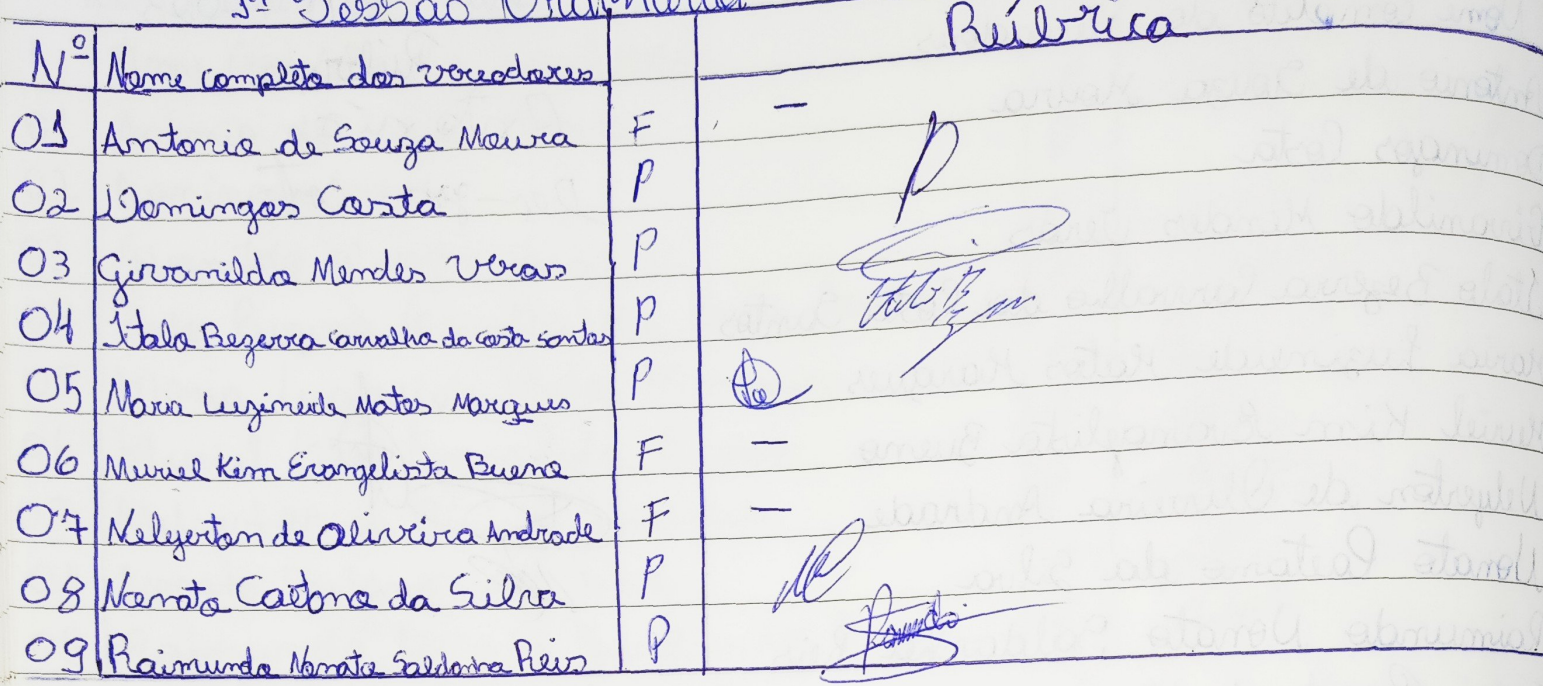 1ª Sessão Ordinária
Nº Nome completo dos vereadores Rúbrica
01 Antonio de Souza Moura F —
02 Domingos Costa P
03 Givanildo Mendes Veras P
04 Ítalo Bezerra Carvalho da Costa Santos P
05 Maria Luzineide Matos Marques P
06 Muriel Kim Evangelista Bueno F —
07 Nelyerton de Oliveira Andrade F —
08 Nonato Caetono da Silva P
09 Raimundo Nonato Saldanha Reis P